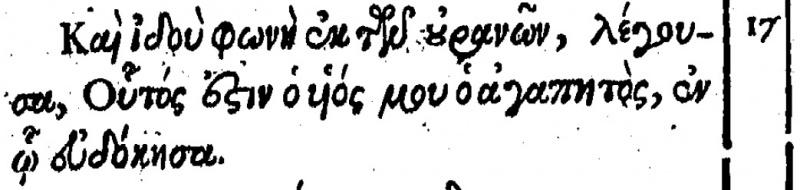 Καὶ ἰδοὺ φωνὴ ἐκ τῶν οὐρανῶν, λέγου- 17
σα, Οὗτός ἐστιν ὁ υἱός μου ὁ ἀγαπητὸς, ἐν
ᾧ εὐδόκησα.